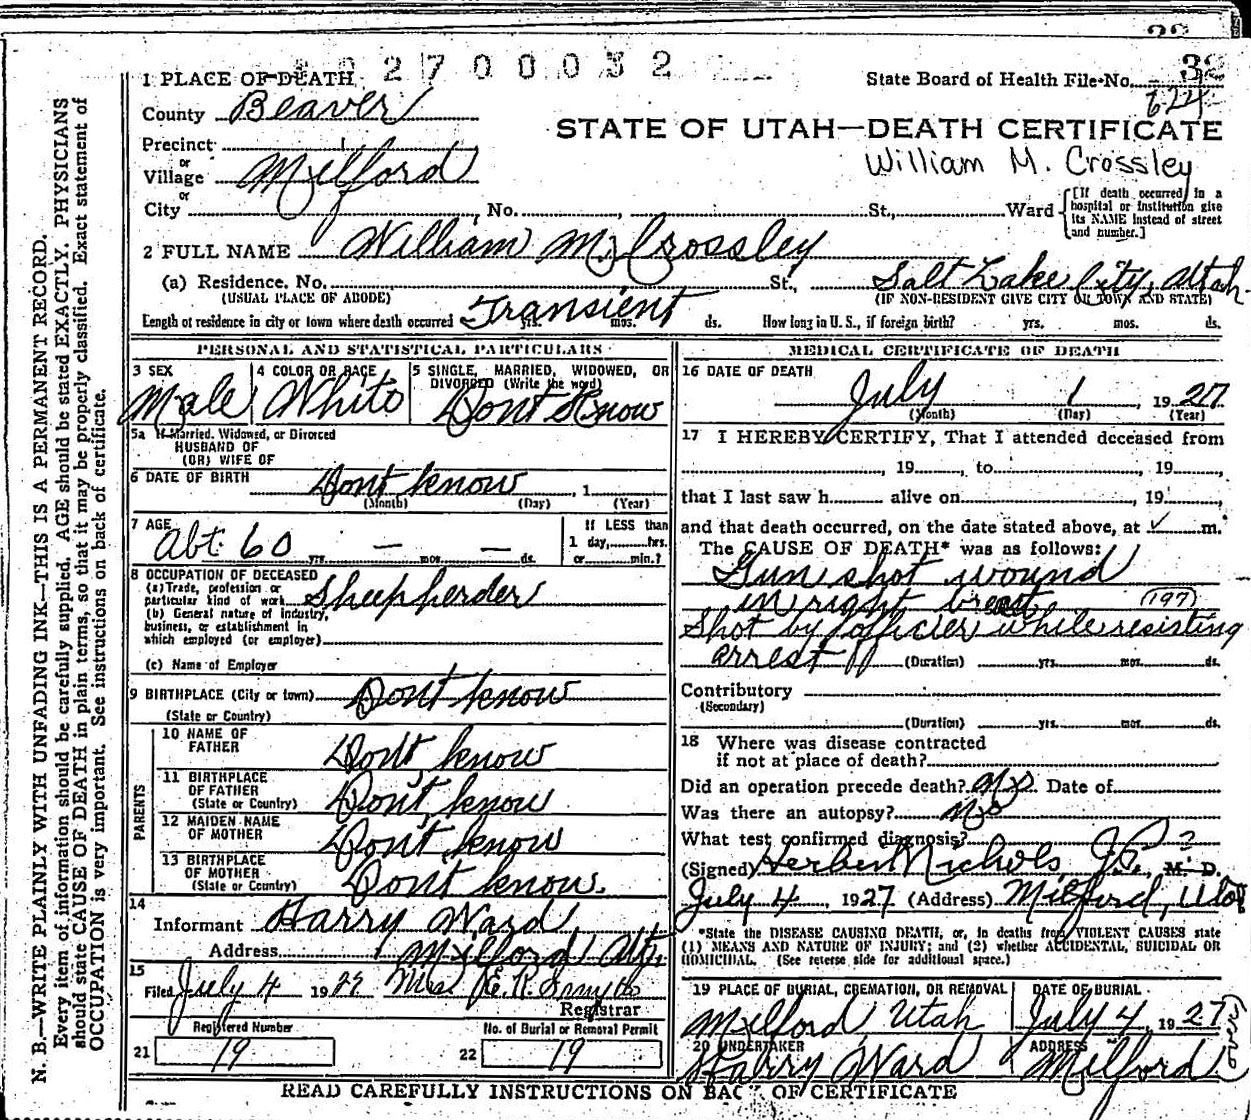 32
2700032
1 PLACE OF DEATH
State Board of Health File No. 32
County Beaver
624
STATE OF UTAH—DEATH CERTIFICATE
Precinct
William M. Crossley
or
Village Milford
or
City , No. , St., Ward
[If death occurred in a hospital or institution give its NAME instead of street and number.]
2 FULL NAME William M. Crossley
(a) Residence. No. St., Salt Lake City, Utah
(USUAL PLACE OF ABODE) (IF NON-RESIDENT GIVE CITY OR TOWN AND STATE)
Length of residence in city or town where death occurred Transient yrs. mos. ds. How long in U. S., if foreign birth? yrs. mos. ds.
PERSONAL AND STATISTICAL PARTICULARS
3 SEX
Male
4 COLOR OR RACE
White
5 SINGLE, MARRIED, WIDOWED, OR
DIVORCED (Write the word)
Dont Know
5a If Married, Widowed, or Divorced
HUSBAND OF
(OR) WIFE OF
6 DATE OF BIRTH Dont know , 1
(Month) (Day) (Year)
7 AGE
Abt 60 yrs. — mos. — ds.
If LESS than
1 day, hrs.
or min.?
8 OCCUPATION OF DECEASED
(a) Trade, profession or
particular kind of work Sheepherder
(b) General nature of industry,
business, or establishment in
which employed (or employer)
(c) Name of Employer
9 BIRTHPLACE (City or town) Dont know
(State or Country)
PARENTS
10 NAME OF
FATHER Don't know
11 BIRTHPLACE
OF FATHER
(State or Country) Don't know
12 MAIDEN NAME
OF MOTHER Don't know
13 BIRTHPLACE
OF MOTHER
(State or Country) Dont know.
14
Informant Harry Ward
Address Milford Utah
15
Filed July 4 1927 Mrs E. R. Smyth
Registrar
Registered Number
21 19
No. of Burial or Removal Permit
22 19
MEDICAL CERTIFICATE OF DEATH
16 DATE OF DEATH
July 1 1927
(Month) (Day) (Year)
17 I HEREBY CERTIFY, That I attended deceased from
, 19 , to , 19 ,
that I last saw h alive on , 19
and that death occurred, on the date stated above, at ✓ m.
The CAUSE OF DEATH* was as follows:
Gun shot wound
in right breast (197)
Shot by officier while resisting
arrest (Duration) yrs. mos. ds.
Contributory
(Secondary)
(Duration) yrs. mos. ds.
18 Where was disease contracted
if not at place of death?
Did an operation precede death? No Date of
Was there an autopsy? No
What test confirmed diagnosis? ?
(Signed) Herbert Nichols J.P. M. D.
July 4, 1927 (Address) Milford, Utah
*State the DISEASE CAUSING DEATH, or, in deaths from VIOLENT CAUSES state
(1) MEANS AND NATURE OF INJURY; and (2) whether ACCIDENTAL, SUICIDAL OR
HOMICIDAL. (See reverse side for additional space.)
19 PLACE OF BURIAL, CREMATION, OR REMOVAL
Milford, Utah
DATE OF BURIAL
July 4, 1927
20 UNDERTAKER
Harry Ward
ADDRESS
Milford
READ CAREFULLY INSTRUCTIONS ON BACK OF CERTIFICATE
N. B.—WRITE PLAINLY WITH UNFADING INK—THIS IS A PERMANENT RECORD.
Every item of information should be carefully supplied. AGE should be stated EXACTLY. PHYSICIANS
should state CAUSE OF DEATH in plain terms, so that it may be properly classified. Exact statement of
OCCUPATION is very important. See instructions on back of certificate.